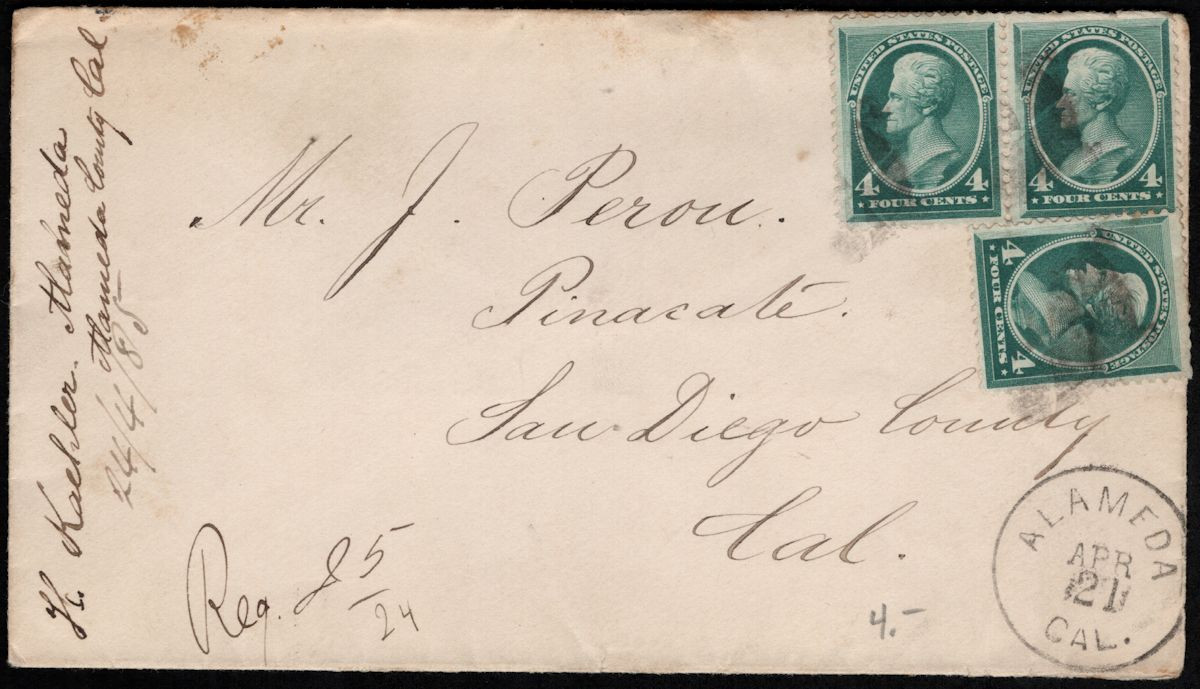 H. Kaehler. Alameda
Alameda County Cal
24/4/85
UNITED STATES POSTAGE
4 4
FOUR CENTS
UNITED STATES POSTAGE
4 4
FOUR CENTS
UNITED STATES POSTAGE
4 4
FOUR CENTS
Mr. J. Perou.
Pinacaté.
San Diego County
Cal.
Reg. 85/24
4.-
ALAMEDA
APR
21
CAL.